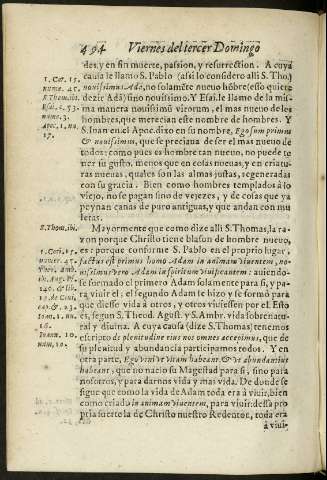 494 Viernes del tercer Domingo
des, y en fin muerte, passion, y resurrection. A cuya
causa le llamo S. Pablo (assi lo considero alli S. Tho.)
nouissimus Adā, no solamēte nueuo hōbre (esso quiere
dezir Adā) sino nouissimo. Y Esai. le llamo de la mis-
ma manera nouissimū virorum, el mas nueuo de los
hombres, que merecian este nombre de hombres. Y
S. Iuan en el Apoc. dixo en su nombre, Ego sum primus
& nouissimus, que se preciaua de ser el mas nueuo de
todos: como pues es hombre tan nueuo, no puede te
ner su gusto, menos que en cosas nueuas, y en criatu-
ras nueuas, quales son las almas justas, regeneradas
con su gracia. Bien como hombres templados à lo
viejo, no se pagan sino de vejezes, y de cosas que ya
peynan canas de puro antiguas, y que andan con mu
letas.
Mayormente que como dize alli S. Thomas, la ra-
zon porque Christo tiene blason de hombre nueuo,
es: porque conforme S. Pablo en el proprio lugar,
factus est primus homo Adam in animam viuentem, no-
uissimus vero Adam in spiritum viuificantem: auiendo-
se formado el primero Adam solamente para si, y pa-
ra viuir el; el segundo Adam se hizo y se formò para
que diesse vida à otros, y otros viuiessen por el. Esto
es, segun S. Theod. Agust. y S. Ambr. vida sobrenatu-
ral y diuina. A cuya causa (dize S. Thomas) tenemos
escripto de plenitudine eius nos omnes accepimus, que de
su plenitud y abundancia participamos todos. Y en
otra parte, Ego veni vt vitam habeant, & vt abundantius
habeant, que no nacio su Magestad para si, sino para
nosotros, y para darnos vida y mas vida. De donde se
sigue que como la vida de Adam toda era à viuir, bien
como criado in animam viuentem, para viuir: dessa pro
pria suerte la de Christo nuestro Redentor, toda era
à viui-
1. Cor. 15.
nume. 45.
S. Thom. ibi.
Esai. c. 53.
nume. 3.
Apoc. 1. nu.
17.
S. Thom. ibi.
1. Cori. 15.
numer. 45.
Theo. Amb.
ibi. Aug. ep.
Ioan. 1. nu.
16.
Ioann. 10.
num. 10.